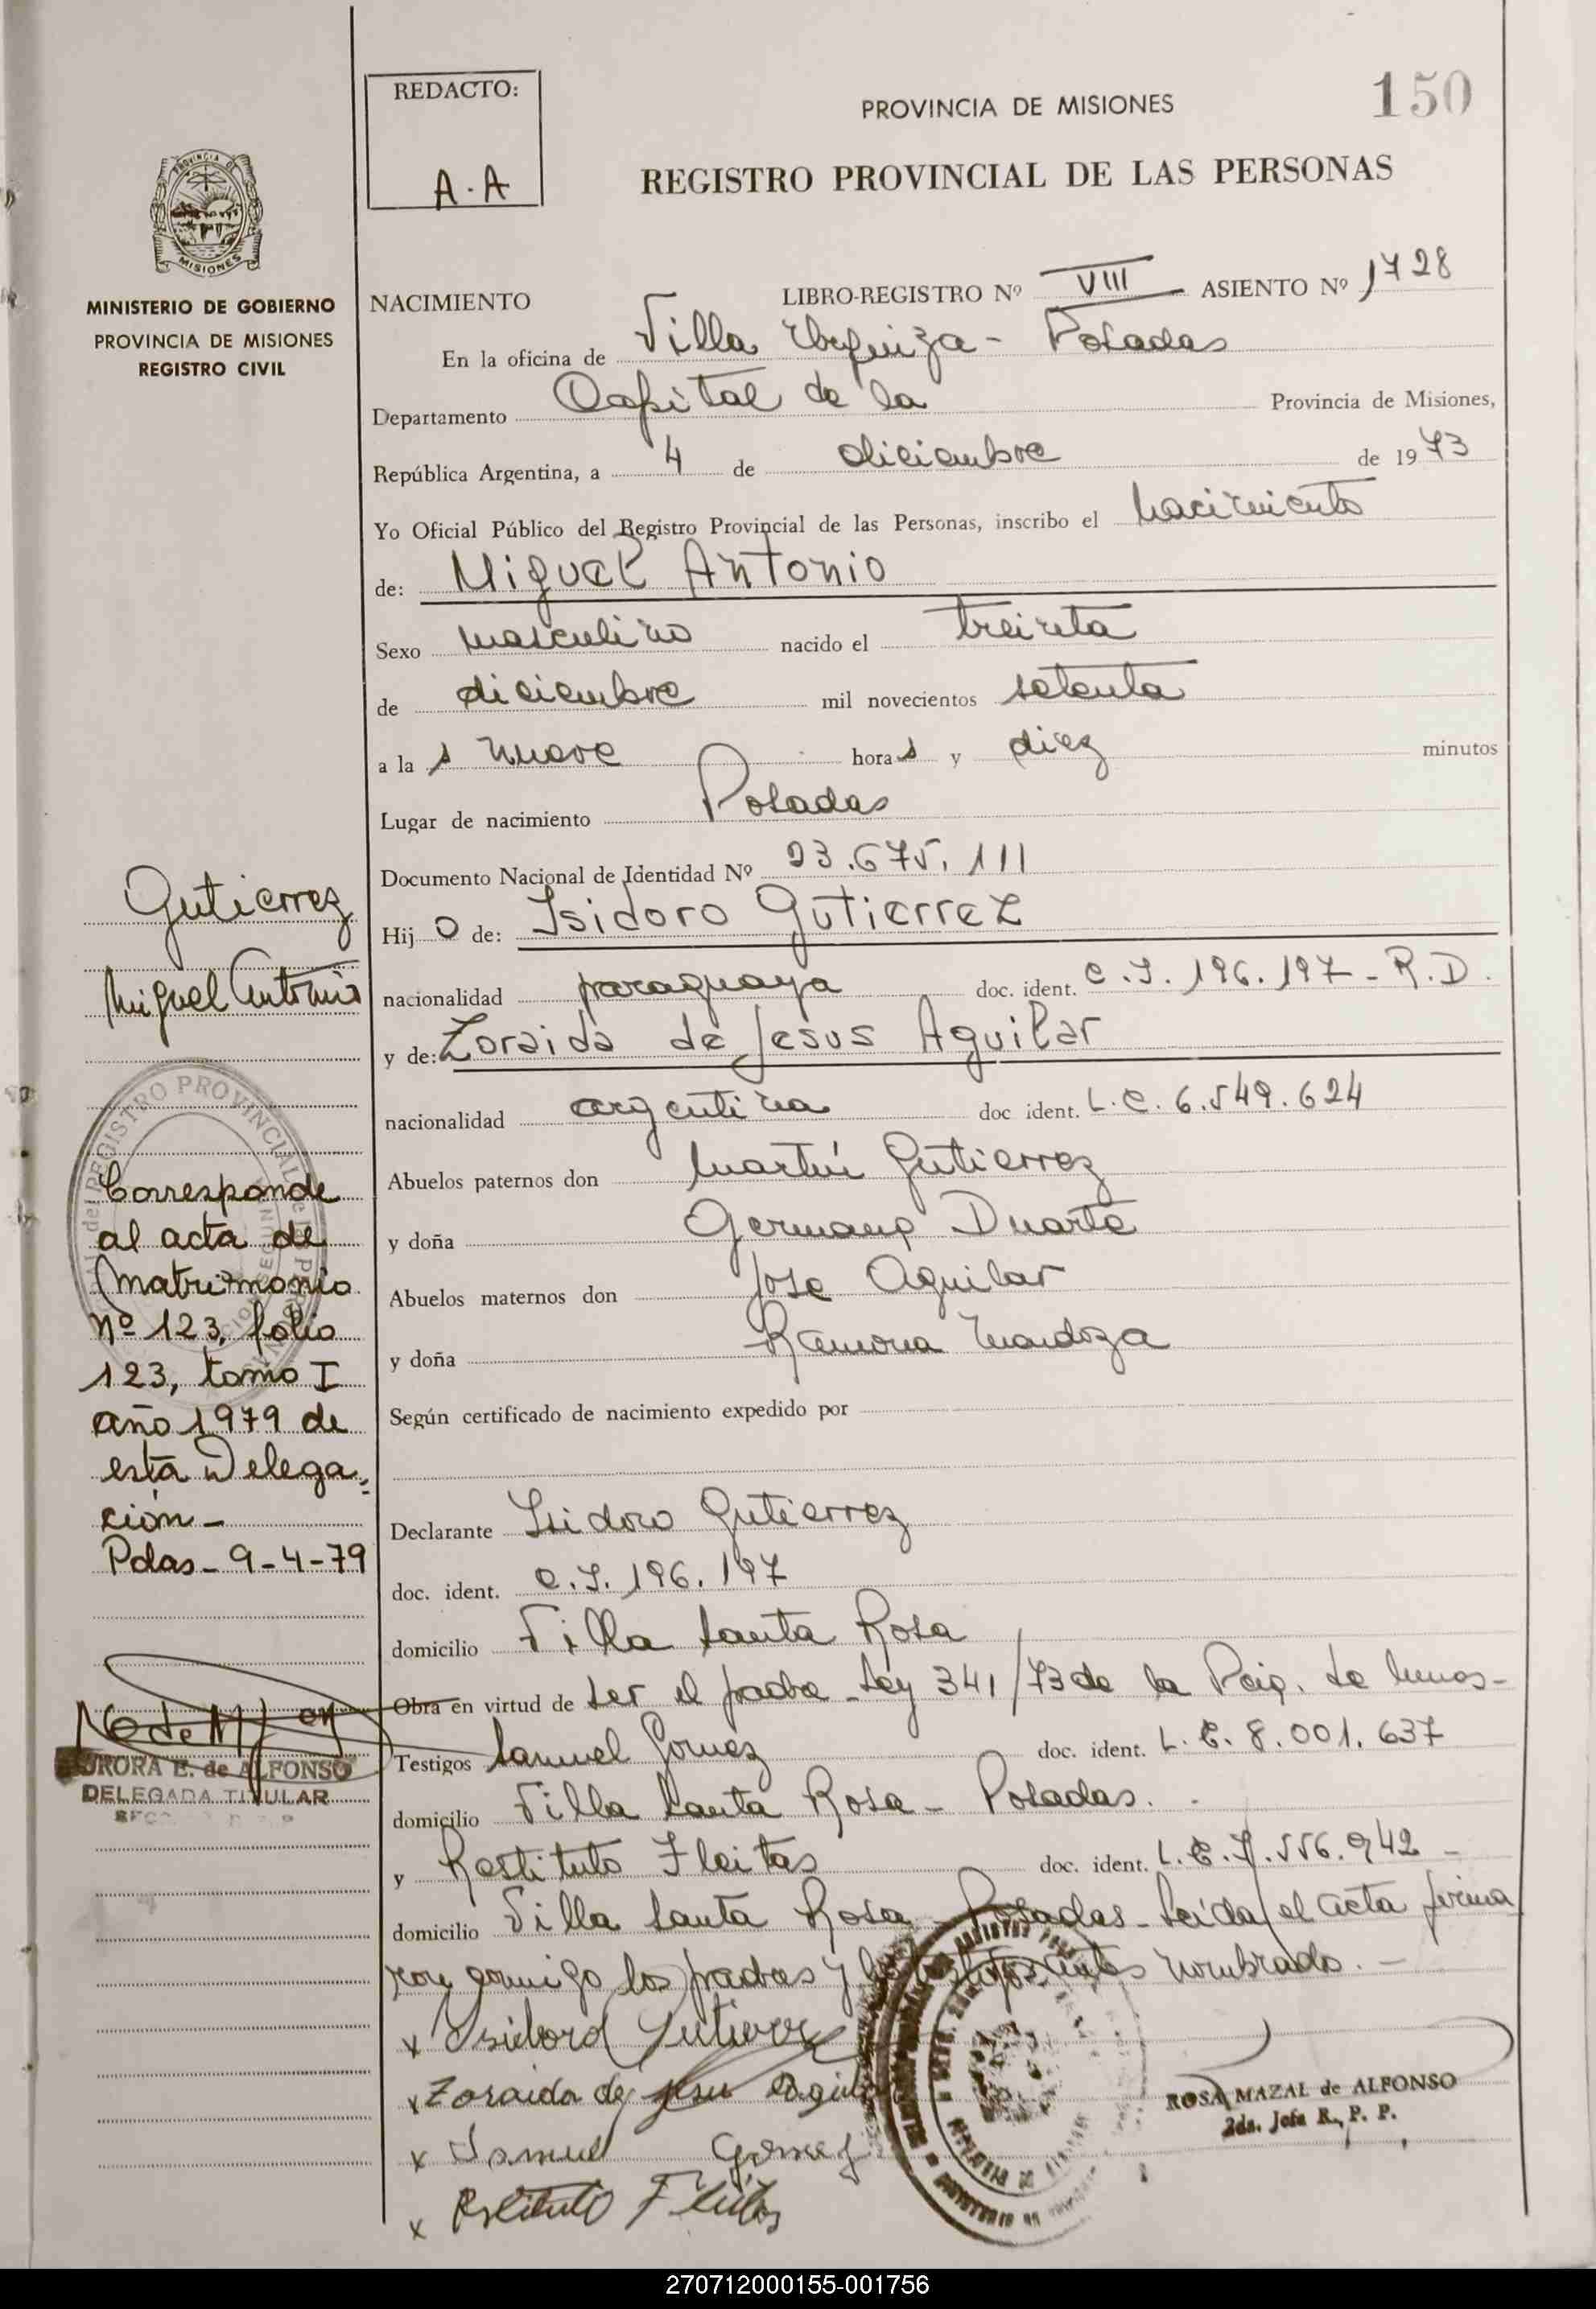 150
REDACTO:
A.A
PROVINCIA DE MISIONES
REGISTRO PROVINCIAL DE LAS PERSONAS
MISIONES
MINISTERIO DE GOBIERNO
PROVINCIA DE MISIONES
REGISTRO CIVIL
NACIMIENTO LIBRO-REGISTRO Nº VIII ASIENTO Nº 1728
En la oficina de Villa Urquiza - Posadas
Departamento Capital de la Provincia de Misiones,
República Argentina, a 4 de diciembre de 1973
Yo Oficial Público del Registro Provincial de las Personas, inscribo el nacimiento
de: Miguel Antonio
Sexo masculino nacido el treinta
de diciembre mil novecientos setenta
a la s nueve hora s y diez minutos
Lugar de nacimiento Posadas
Documento Nacional de Identidad Nº 23.675.111
Hij o de: Isidoro Gutierrez
nacionalidad paraguaya doc. ident. C.I. 196.197 - R.D.
y de: Zoraida de Jesus Aguilar
nacionalidad argentina doc ident. L.C. 6.549.624
Abuelos paternos don Martín Gutierrez
y doña Germana Duarte
Abuelos maternos don Jose Aguilar
y doña Ramona Mendoza
Según certificado de nacimiento expedido por
Declarante Isidoro Gutierrez
doc. ident. C.I. 196.197
domicilio Villa Santa Rosa
Obra en virtud de ser el padre - Ley 341/73 de la
Testigos Samuel Gomez doc. ident. L.E. 8.001.637
domicilio Villa Santa Rosa - Posadas.
y Restituto Fleitas doc. ident. L.E. 7.556.942 -
domicilio Villa Santa Rosa - Posadas - Leída el acta firma
ron conmigo los padres y los testigos antes nombrado. -
x Isidoro Gutierrez
x Zoraida de Jesu Aguilar
x Samuel Gomez
x Restituto Fleitas
ROSA MAZAL de ALFONSO
2da. Jefa R., P. P.
Gutierrez
Miguel Antonio
Corresponde
al acta de
Matrimonio
Nº 123, folio
123, tomo I
año 1979 de
esta Delega=
ción -
Pdas - 9-4-79
AURORA E. de ALFONSO
DELEGADA TITULAR
270712000155-001756